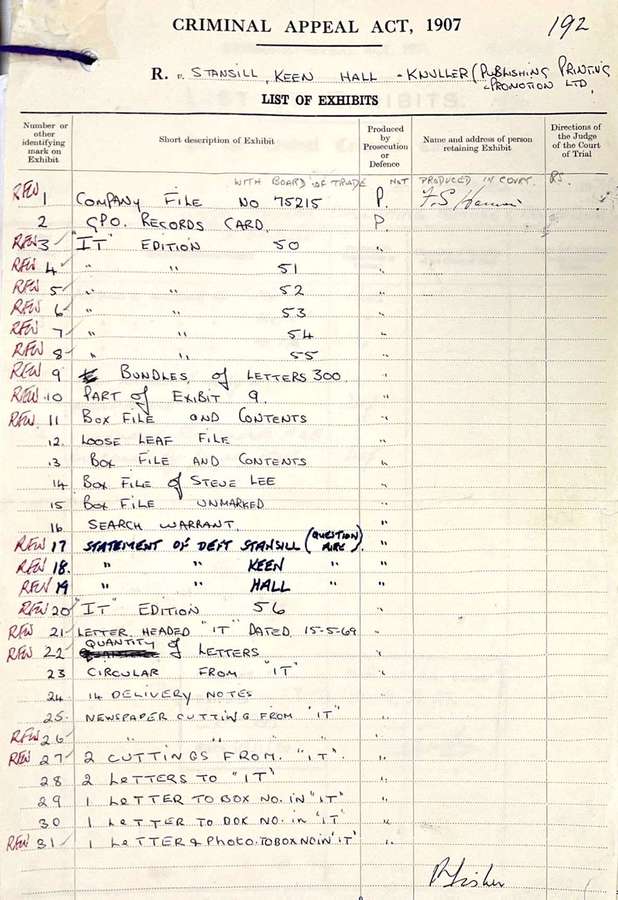 CRIMINAL APPEAL ACT, 1907
192
R. v. STANSILL, KEEN HALL - KNULLER (PUBLISHING PRINTING
- PROMOTION LTD.
LIST OF EXHIBITS
Number or other identifying mark on Exhibit Short description of Exhibit Produced by Prosecution or Defence Name and address of person retaining Exhibit Directions of the Judge of the Court of Trial
WITH BOARD OF TRADE NOT PRODUCED IN COURT.
RFW 1 COMPANY FILE NO 75215 P.
2 GPO. RECORDS CARD. P.
RFW 3 "IT" EDITION 50 "
RFW 4 " " 51 "
RFW 5 " " 52 "
RFW 6 " " 53 "
RFW 7 " " 54 "
RFW 8 " " 55 "
RFW 9 BUNDLES of LETTERS 300. "
RFW 10 PART of EXIBIT 9. "
RFW 11 BOX FILE AND CONTENTS "
12. LOOSE LEAF FILE "
13 BOX FILE AND CONTENTS "
14 BOX FILE of STEVE LEE "
15 BOX FILE UNMARKED "
16 SEARCH WARRANT. "
RFW 17 STATEMENT OF DEFT STANSILL (QUESTION AIRE). "
RFW 18. " " KEEN " " "
RFW 19 " " HALL " " "
RFW 20 "IT" EDITION 56 "
RFW 21 LETTER HEADED "IT" DATED 15-5-69 "
RFW 22 QUANTITY of LETTERS "
23 CIRCULAR FROM "IT" "
24 14 DELIVERY NOTES "
25. NEWSPAPER CUTTING FROM "IT" "
RFW 26 " " " " "
RFW 27 2 CUTTINGS FROM. "IT". "
28 2 LETTERS TO "IT" "
29 1 LETTER TO BOX NO. IN "IT" "
30 1 LETTER TO BOX NO. in "IT" "
RFW 31 1 LETTER & PHOTO. TO BOX NO IN "IT" "